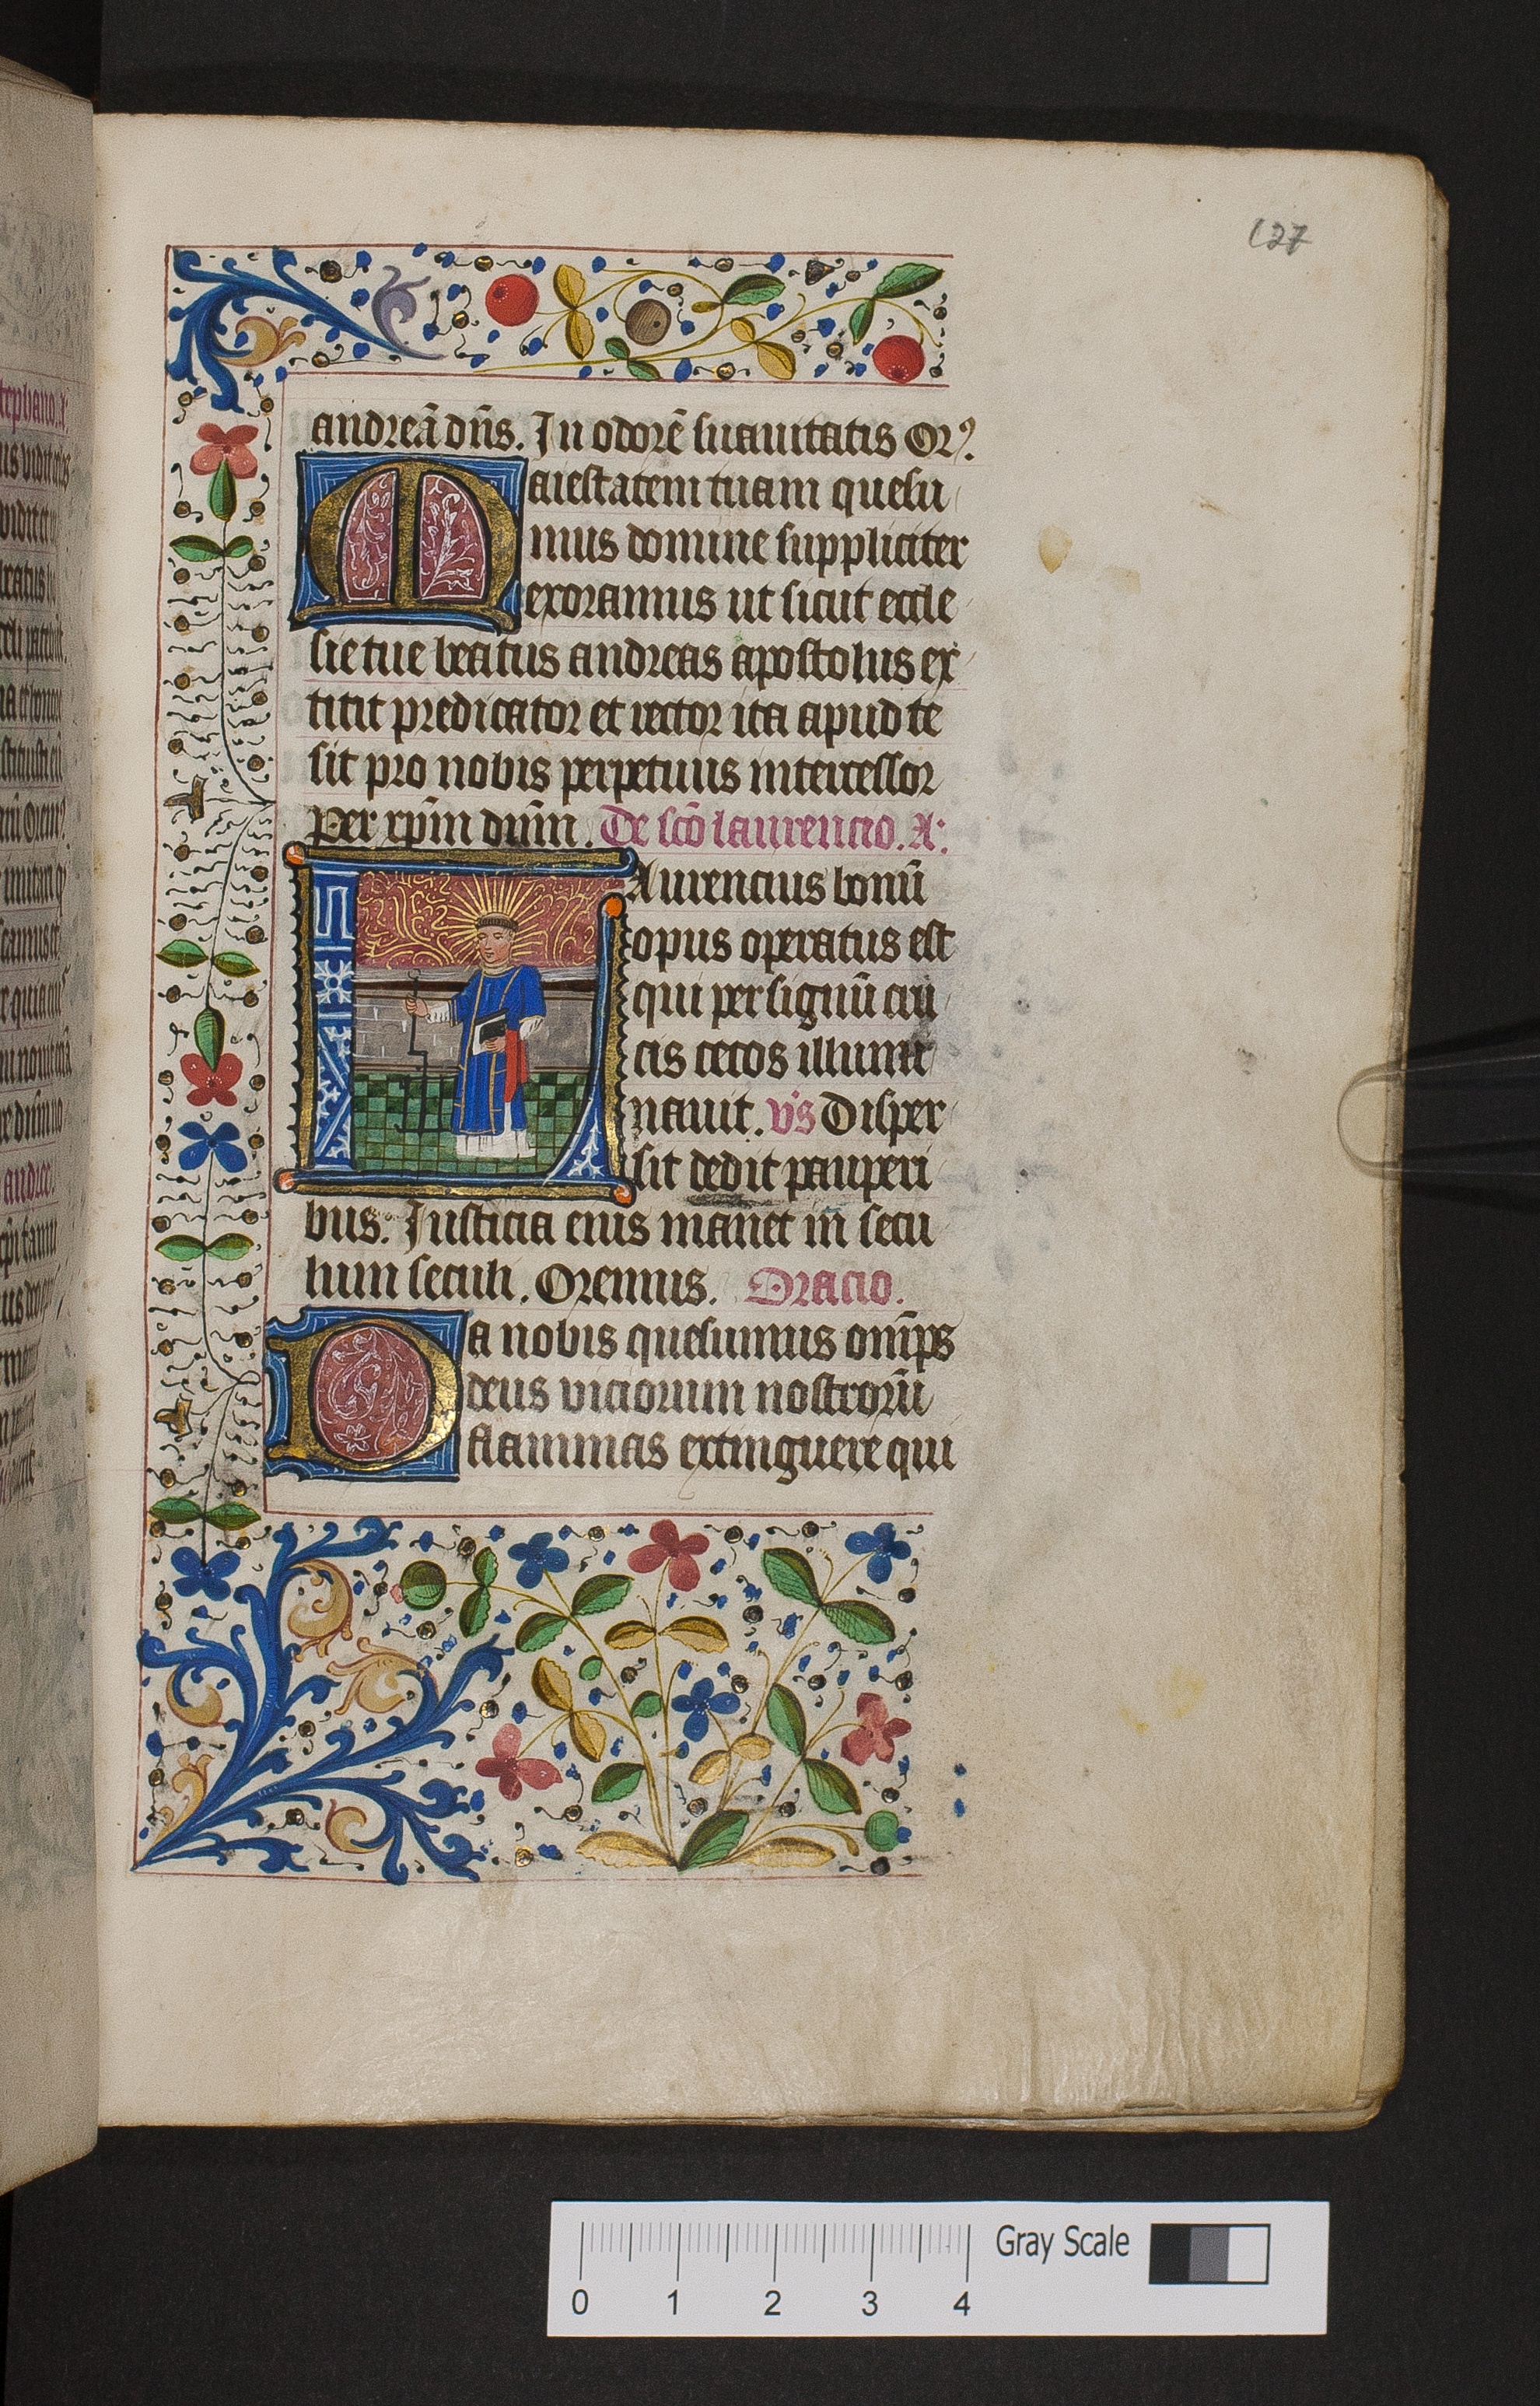 127
andreā dn̄s. In odorē suauitatis Orꝰ.
Maiestatem tuam quesu
mus domine suppliciter
exoramus ut sicut eccle
sie tue beatus andreas apostolus ex
titit predicator et rector ita apud te
sit pro nobis perpetuus intercessor
Per xp̄m dn̄m. De sc̄o laurencio. A:
LAurencius bonū
opus operatus est
qui per signū cru
cis cecos illumi
nauit. v̕s Disper
sit dedit pauperi
bus. Iusticia eius manet in secu
lum seculi. Oremus. Oracio.
Da nobis quesumus omīps
deus viciorum nostrorū
flammas extinguere qui
0 1 2 3 4
Gray Scale